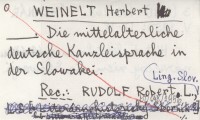 WEINELT Herbert
—. Die mittelalterliche
deutsche Kanzleisprache in
der Slowakei.
(Ling. Slov.
Rec.: RUDOLF Robert, L.